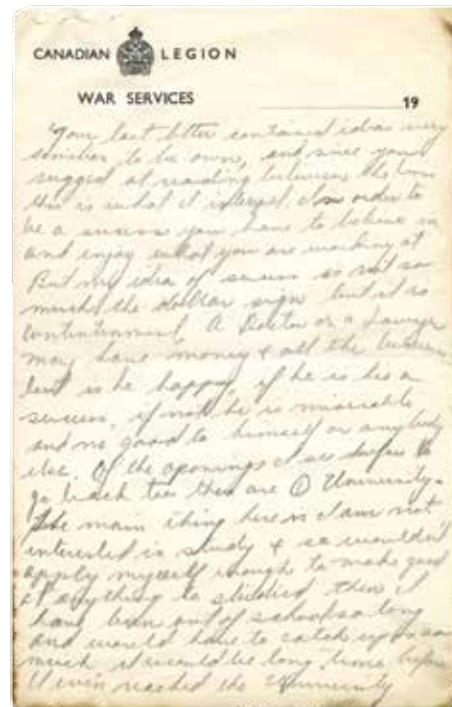 CANADIAN LEGION
WAR SERVICES
19
Your last letter contained ideas very
similar to be own, and since you
suggest at reading between the lines
this is what I interpet. In order to
be a success you have to believe in
and enjoy what you are working at
But my idea of success is not so
much the dollar sign but it is
contentment. A Doctor or a Lawyer
may have money & all the
but is he happy, if he is he's a
success, if not he is miserable
and no good to himself or any body
else. Of the openings I see before to
go back too there are ① University.
The main thing here is I am not
interested in study & so wouldn't
apply myself enough to make good
at anything so studied then I
have been out of school so long
and would have to catch up on so
much it would be long time before
I even reached the University